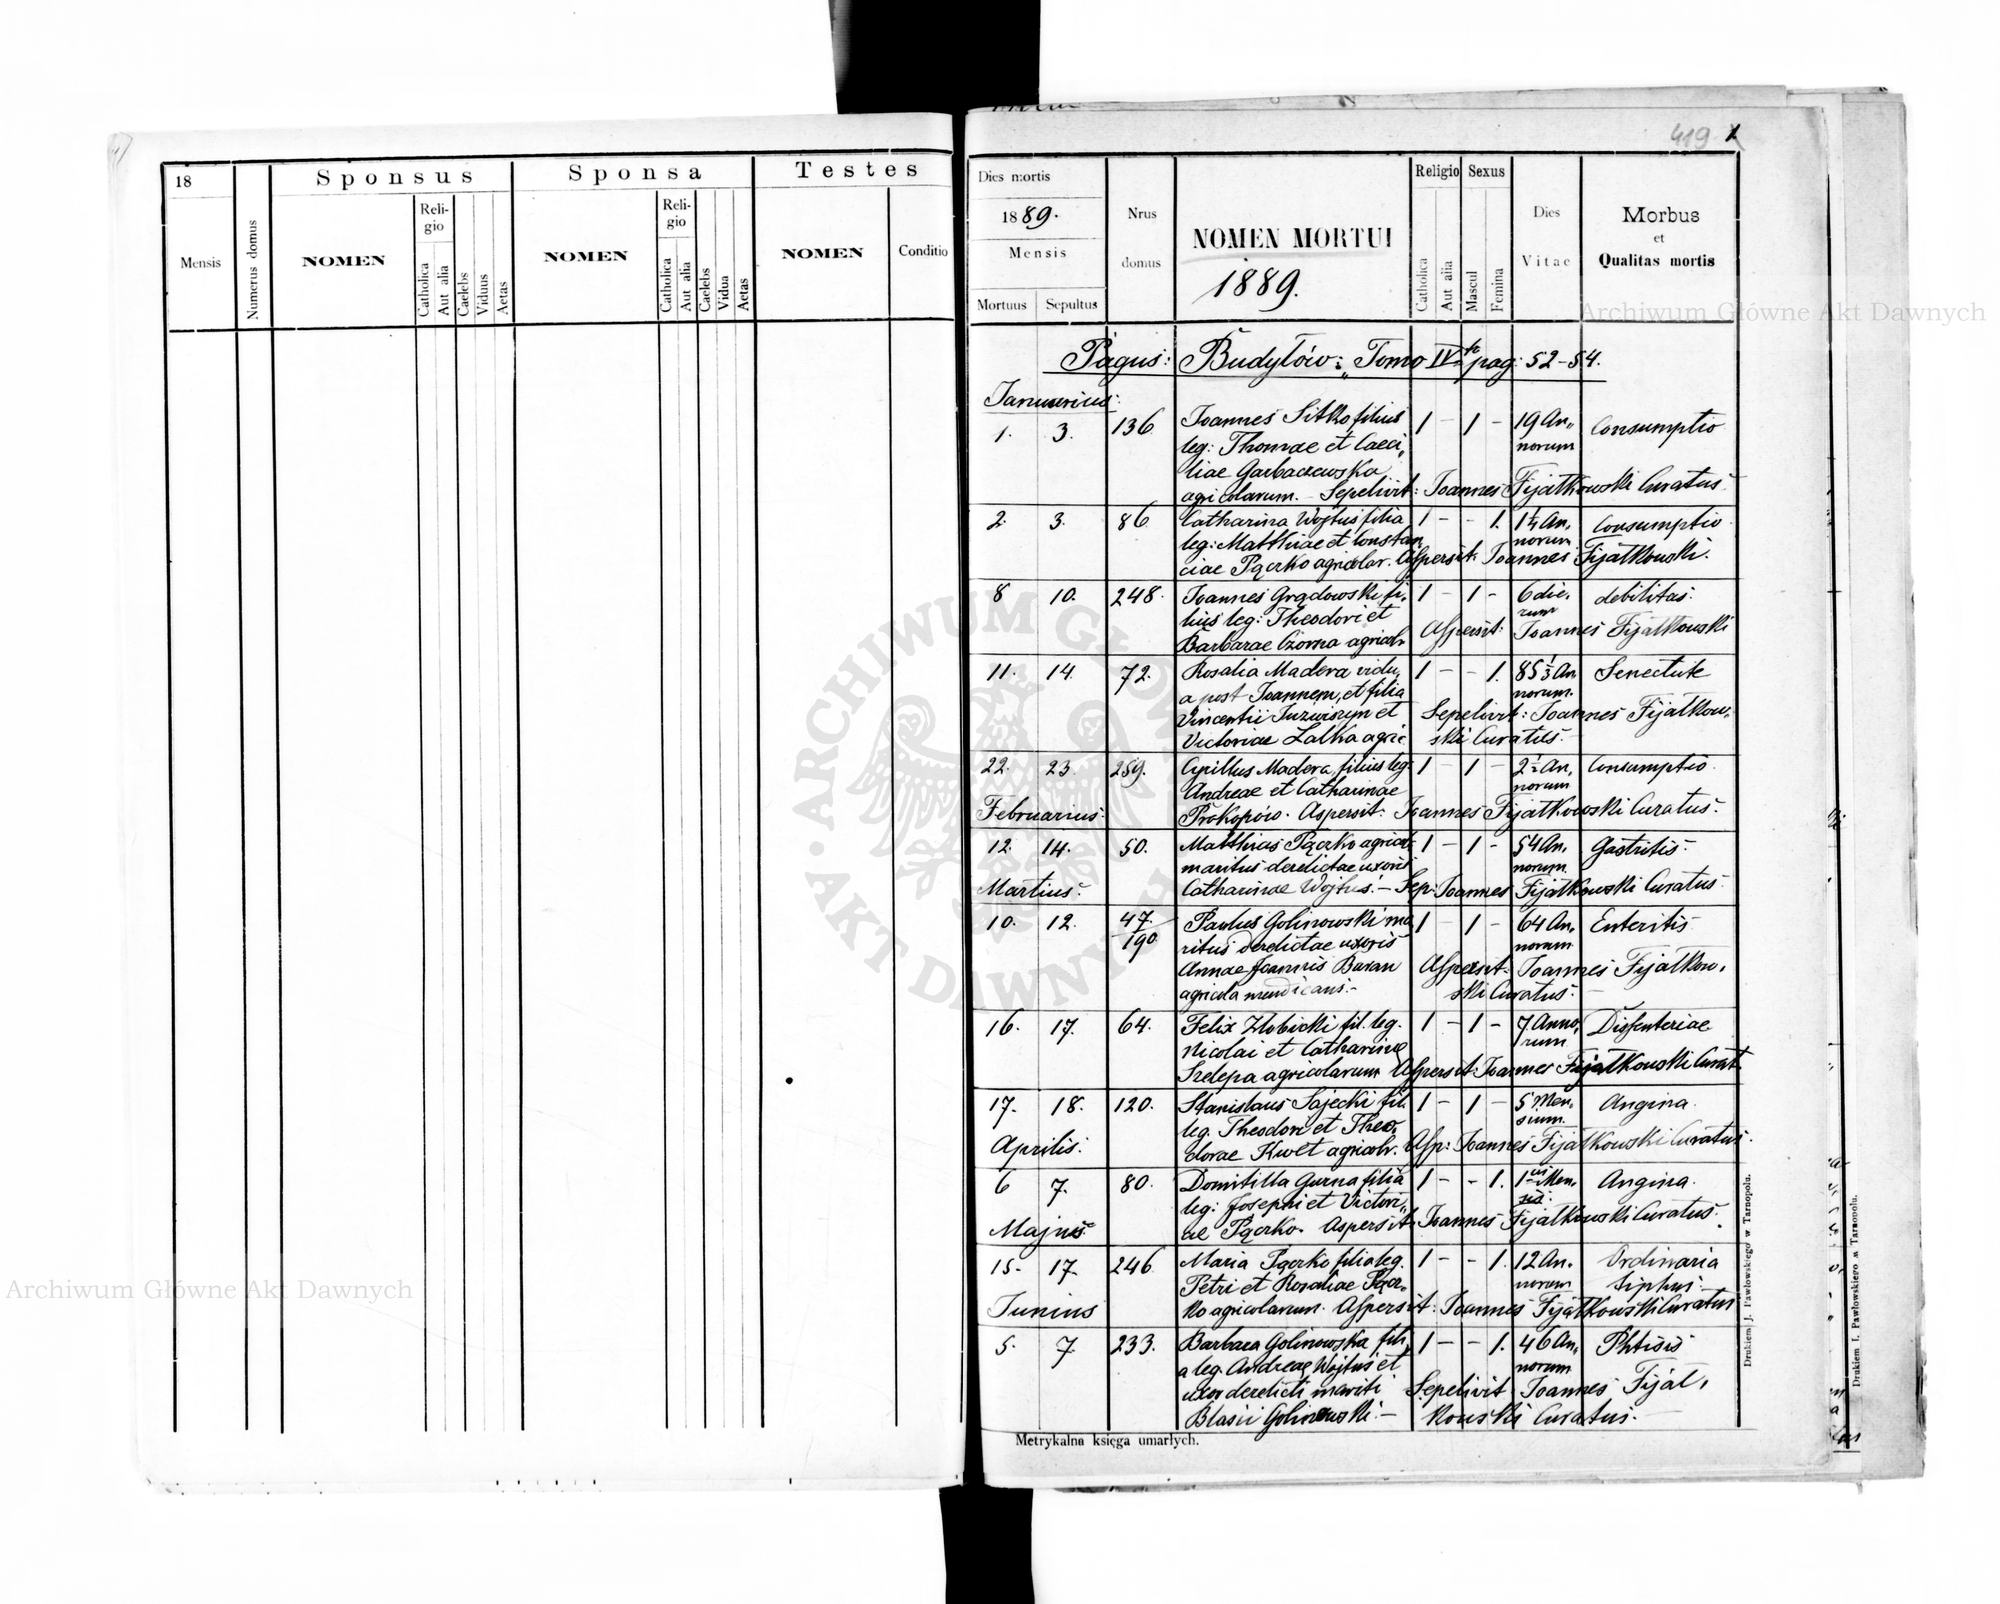 18
Mensis
Numerus domus
Sponsus
NOMEN
Reli-
gio
Catholica
Aut alia
Caelebs
Viduus
Aetas
Sponsa
NOMEN
Reli-
gio
Catholica
Aut alia
Caelebs
Vidua
Aetas
Testes
NOMEN
Conditio
419
1
Dies mortis
1889.
Mensis
Mortuus
Sepultus
Nrus
domus
NOMEN MORTUI
1889.
Religio
Catholica
Aut alia
Sexus
Mascul
Femina
Dies
Vitae
Morbus
et
Qualitas mortis
Pagus: Budyłów: Tomo IV to pag: 52-54.
Januarius:
1. 3. 136 Joannes Sitko filius 1 - 1 - 19 An„ Consumptio
leg: Thomae et Caeci„ norum
liae Garbaczewska
agricolarum. - Sepelivit: Joannes Fijałkowski Curatus
2. 3. 86 Catharina Wojtus filia 1 - - 1. 1¼ An, Consumptio
leg: Matthiae et Constan norum
ciae Pączko agricolar. Aspersit: Joannes Fijałkowski.
8 10. 248. Joannes Grądowski fi, 1 - 1 - 6 die, debilitas:
lius leg: Theodori et rum
Barbarae Czorna agricol. Aspersit: Joannes Fijałkowski
11. 14. 72. Rosalia Madera vidu, 1 - - 1. 85⅓ An Senectute
a post Joannem, et filia norum.
Vincentii Juzwiszyn et Sepelivit: Joannes Fijałkow„
Victoriae Lalka agri: ski Curatus.
22. 23 259. Cyrillus Madera, filius leg: 1 - 1 - 2½ An, Consumptio
Andreae et Catharinae norum
Februarius: Prokopów. Aspersit: Joannes Fijałkowski Curatus.
12. 14. 50. Matthias Pączko agricol. 1 - 1 - 54 An, Gastritis.
maritus derelictae uxoris norum
Martius: Catharinae Wojtus. - Sep: Joannes Fijałkowski Curatus.
10. 12. 47. Paulus Golinowski ma 1 - 1 - 64 An, Enteritis
190 ritus derelictae uxoris norum
Annae Joannis Baran Aspersit: Joannes Fijałkow,
agricola mendicans.- ski Curatus.
16. 17. 64. Felix Złobicki fil. leg. 1 - 1 - 7 Anno, Dissenteriae
Nicolai et Catharinae rum
Szelepa agricolarum Aspersit Joannes Fijałkowski Curat.
17. 18. 120. Stanislaus Sajecki fil. 1 - 1 - 5 Men, Angina.
leg. Theodori et Theo, sium.
Aprilis: dorae Kwet agricolr. Asp: Joannes Fijałkowski Curatus.
6 7. 80. Domitilla Gurna filia 1 - - 1. 1 Men, Angina.
leg: Josephi et Victori„ sis.
Majus: ae Pączko. Aspersit Joannes Fijałkowski Curatus.
15. 17. 246 Maria Pączko filia leg. 1 - - 1. 12 An. Ordinaria
Petri et Rosaliae Pącz„ norum tiphus.
Junius ko agricolarum. Aspersit: Joannes Fijałkowski Curatus
5. 7. 233. Barbara Golinowska fili, 1 - - 1. 46 An, Phtisis
a leg. Andreae Wojtus et norum
uxor derelicti mariti Sepelivit Joannes Fijał,
Blasii Golinowski. - kowski Curatus. -
Metrykalna księga umarłych.
Drukiem J. Pawłowskiego w Tarnopolu.
Drukiem I. Pawłowskiego w Tarnopolu.
Archiwum Główne Akt Dawnych
Archiwum Główne Akt Dawnych
ARCHIWUM GŁÓWNE · AKT DAWNYCH